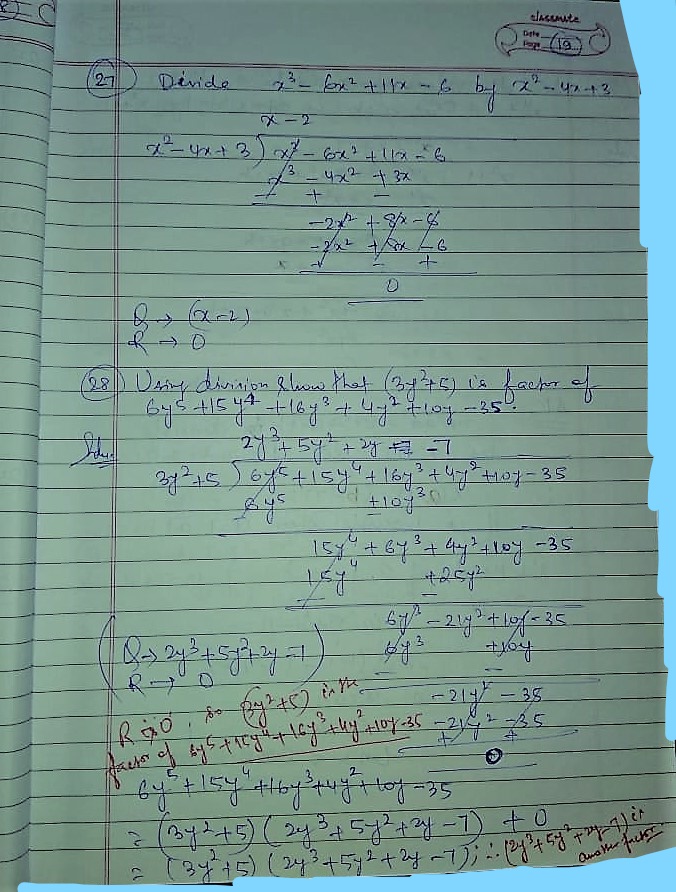 classmate
Date
Page 19
27 Devide x³ - 6x² + 11x - 6 by x² - 4x + 3
x - 2
x² - 4x + 3 ) x³ - 6x² + 11x - 6
x³ - 4x² + 3x
- + -
-2x² + 8x - 6
-2x² + 8x - 6
+ - +
0
Q → (x-2)
R → 0
28 Using division show that (3y²+5) is factor of
6y⁵ + 15y⁴ + 16y³ + 4y² + 10y - 35.
Soln
2y³ + 5y² + 2y - 7
3y²+5 ) 6y⁵ + 15y⁴ + 16y³ + 4y² + 10y - 35
6y⁵ + 10y³
- -
15y⁴ + 6y³ + 4y² + 10y - 35
15y⁴ + 25y²
- -
6y³ - 21y² + 10y - 35
6y³ + 10y
- -
Q → 2y³ + 5y² + 2y - 7
R → 0
-21y² - 35
-21y² - 35
+ +
0
R is 0, so (3y²+5) is the
factor of 6y⁵ + 15y⁴ + 16y³ + 4y² + 10y - 35
6y⁵ + 15y⁴ + 16y³ + 4y² + 10y - 35
= (3y²+5) (2y³ + 5y² + 2y - 7) + 0
= (3y²+5) (2y³ + 5y² + 2y - 7); ∴ (2y³ + 5y² + 2y - 7) is
another factor.